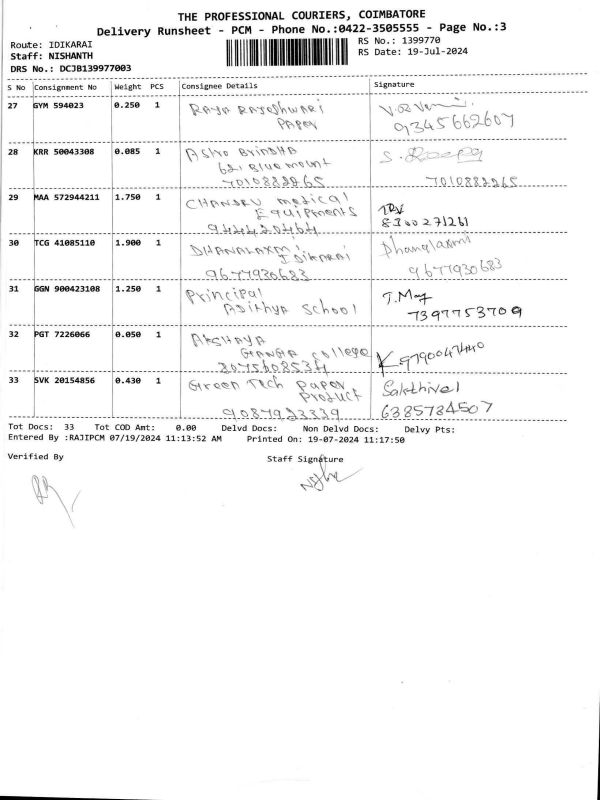 THE PROFESSIONAL COURIERS, COIMBATORE
Delivery Runsheet - PCM - Phone No.:0422-3505555 - Page No.:3
Route: IDIKARAI
RS No.: 1399770
Staff: NISHANTH
RS Date: 19-Jul-2024
DRS No.: DCJB139977003
S No Consignment No Weight PCS Consignee Details Signature
27 GYM 594023 0.250 1 RAJA RAJeshwari
PAPer
9345662607
28 KRR 50043308 0.085 1 Astro BrindHA
62, Blue mount
7010882265 7010882265
29 MAA 572944211 1.750 1 CHANDRU medical
Equipments
9444420464 8300271261
30 TCG 41085110 1.900 1 DHANALAXMI Dhanalaxmi
Idikarai
9677930683 9677930683
31 GGN 900423108 1.250 1 Principal T.May
Adithya School 7397753709
32 PGT 7226066 0.050 1 AKSHAYA
GANGA college
33 SVK 20154856 0.430 1 Green Tech Paper Sakthivel
Product
9087923339 6385784507
Tot Docs: 33 Tot COD Amt: 0.00 Delvd Docs: Non Delvd Docs: Delvy Pts:
Entered By :RAJIPCM 07/19/2024 11:13:52 AM Printed On: 19-07-2024 11:17:50
Verified By Staff Signature